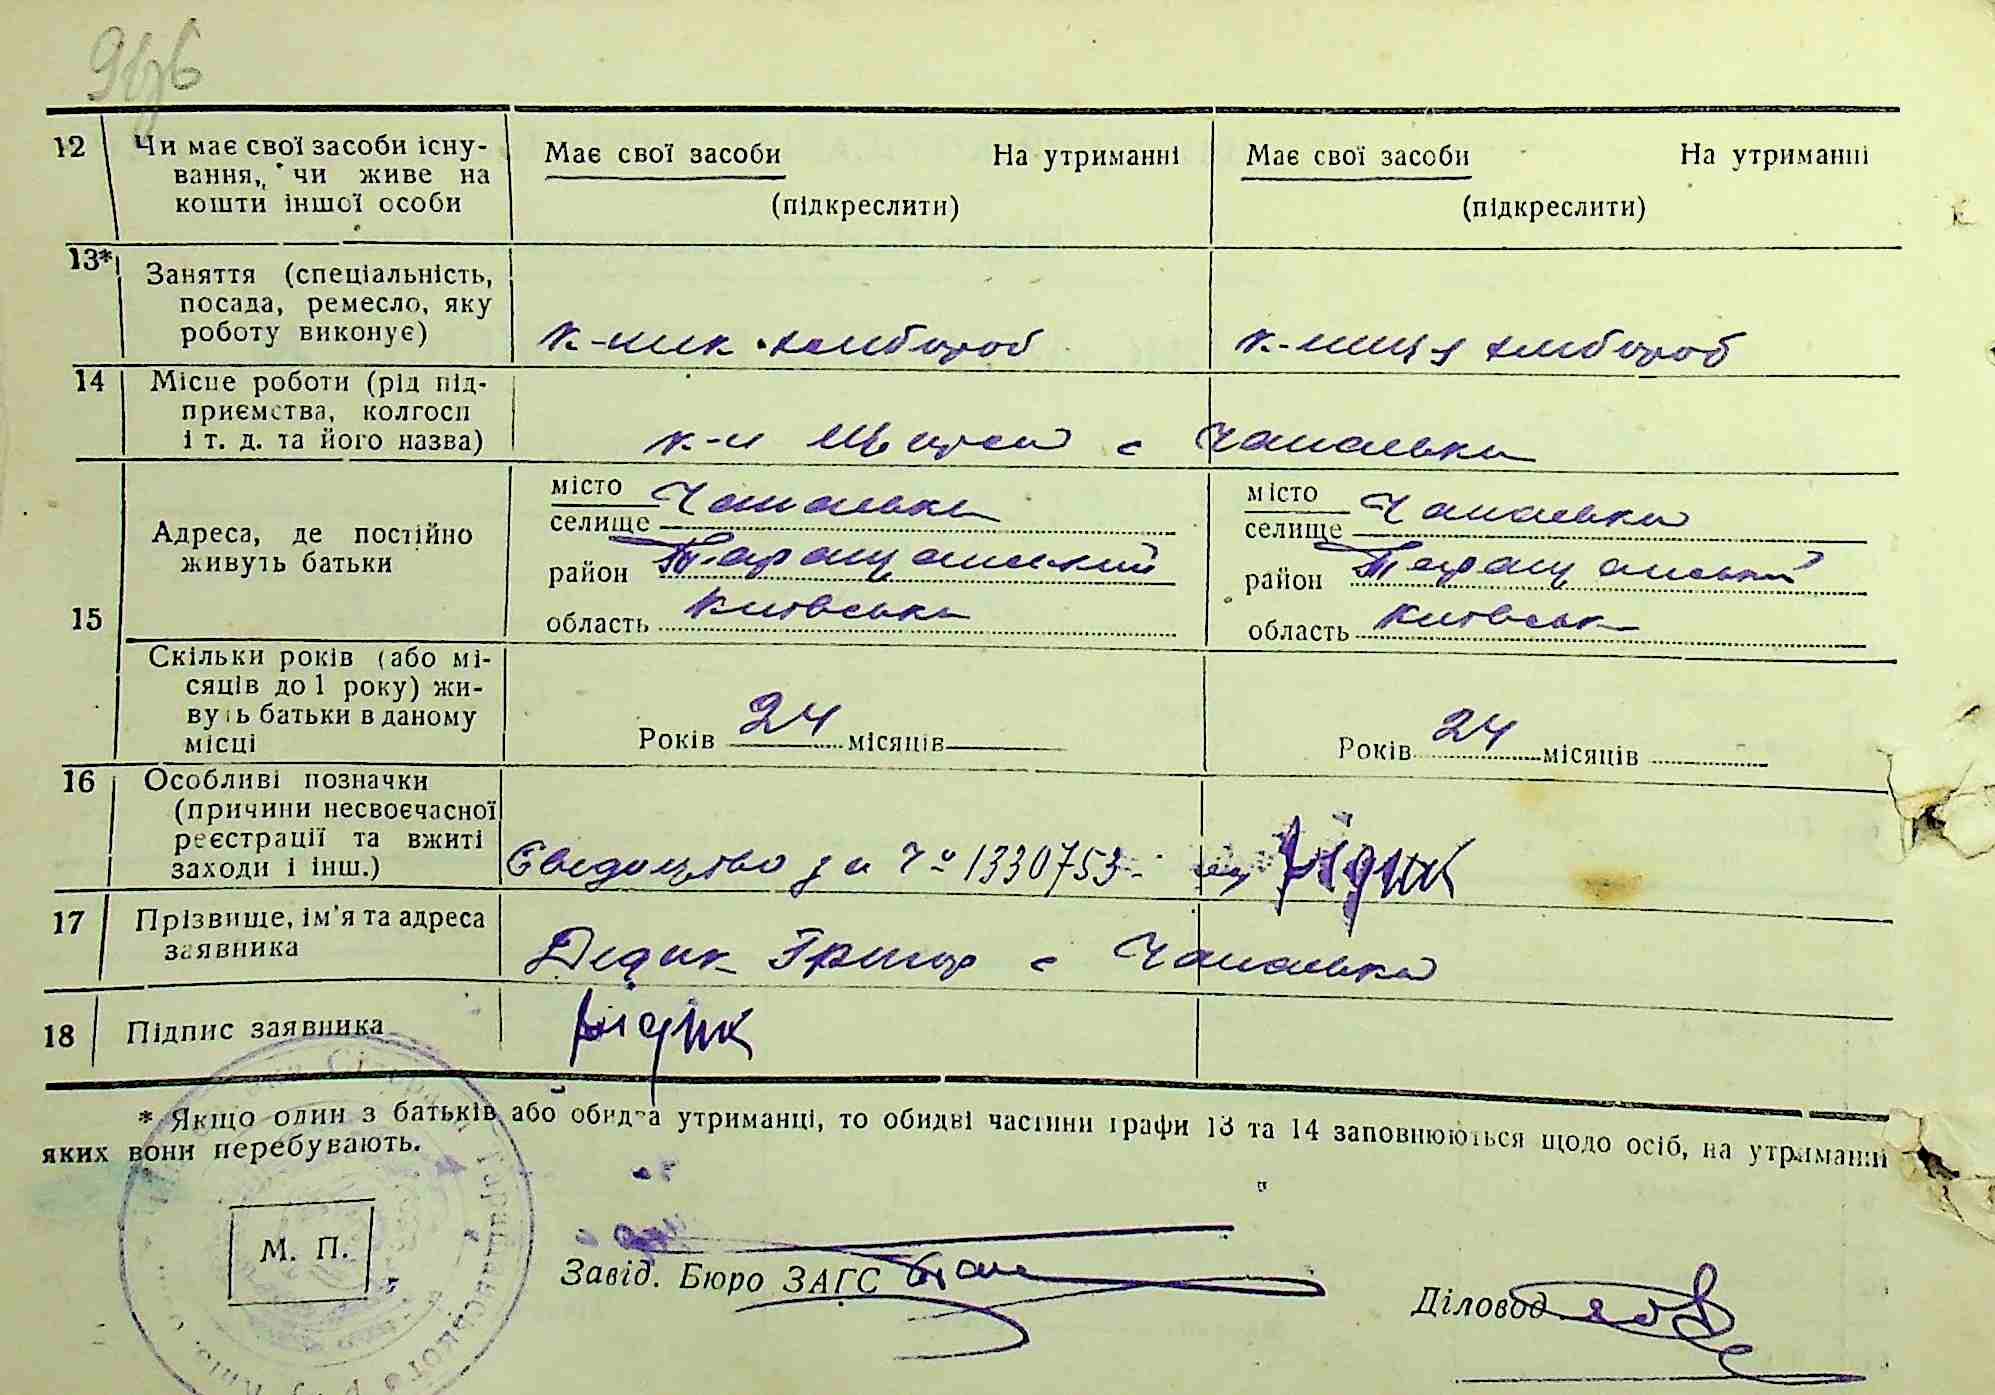 12 Чи має свої засоби існу-
вання, чи живе на
кошти іншої особи
Має свої засоби На утриманні
(підкреслити)
Має свої засоби На утриманні
(підкреслити)
13* Заняття (спеціальність,
посада, ремесло, яку
роботу виконує)
к-ник хлібороб
к-ниця хлібороб
14 Місце роботи (рід під-
приємства, колгосп
і т. д. та його назва)
к-п Щорса с Чапаевка
15 Адреса, де постійно
живуть батьки
місто Чапаевка
селище
район Таращанский
область Київська
місто Чапаевка
селище
район Таращанський
область Київськ
Скільки років (або мі-
сяців до 1 року) жи-
вуть батьки в даному
місці
Років 24 місяців
Років 24 місяців
16 Особливі позначки
(причини несвоєчасної
реєстрації та вжиті
заходи і інш.)
Свидоцтво за Чо 1330753 Дідик
17 Прізвище, ім'я та адреса
заявника
Дедик Григор с Чапаевка
18 Підпис заявника
Дідик
* Якщо один з батьків або обидва утриманці, то обидві частини графи 13 та 14 заповнюються щодо осіб, на утриманні
яких вони перебувають.
М. П.
Завід. Бюро ЗАГС
Діловод